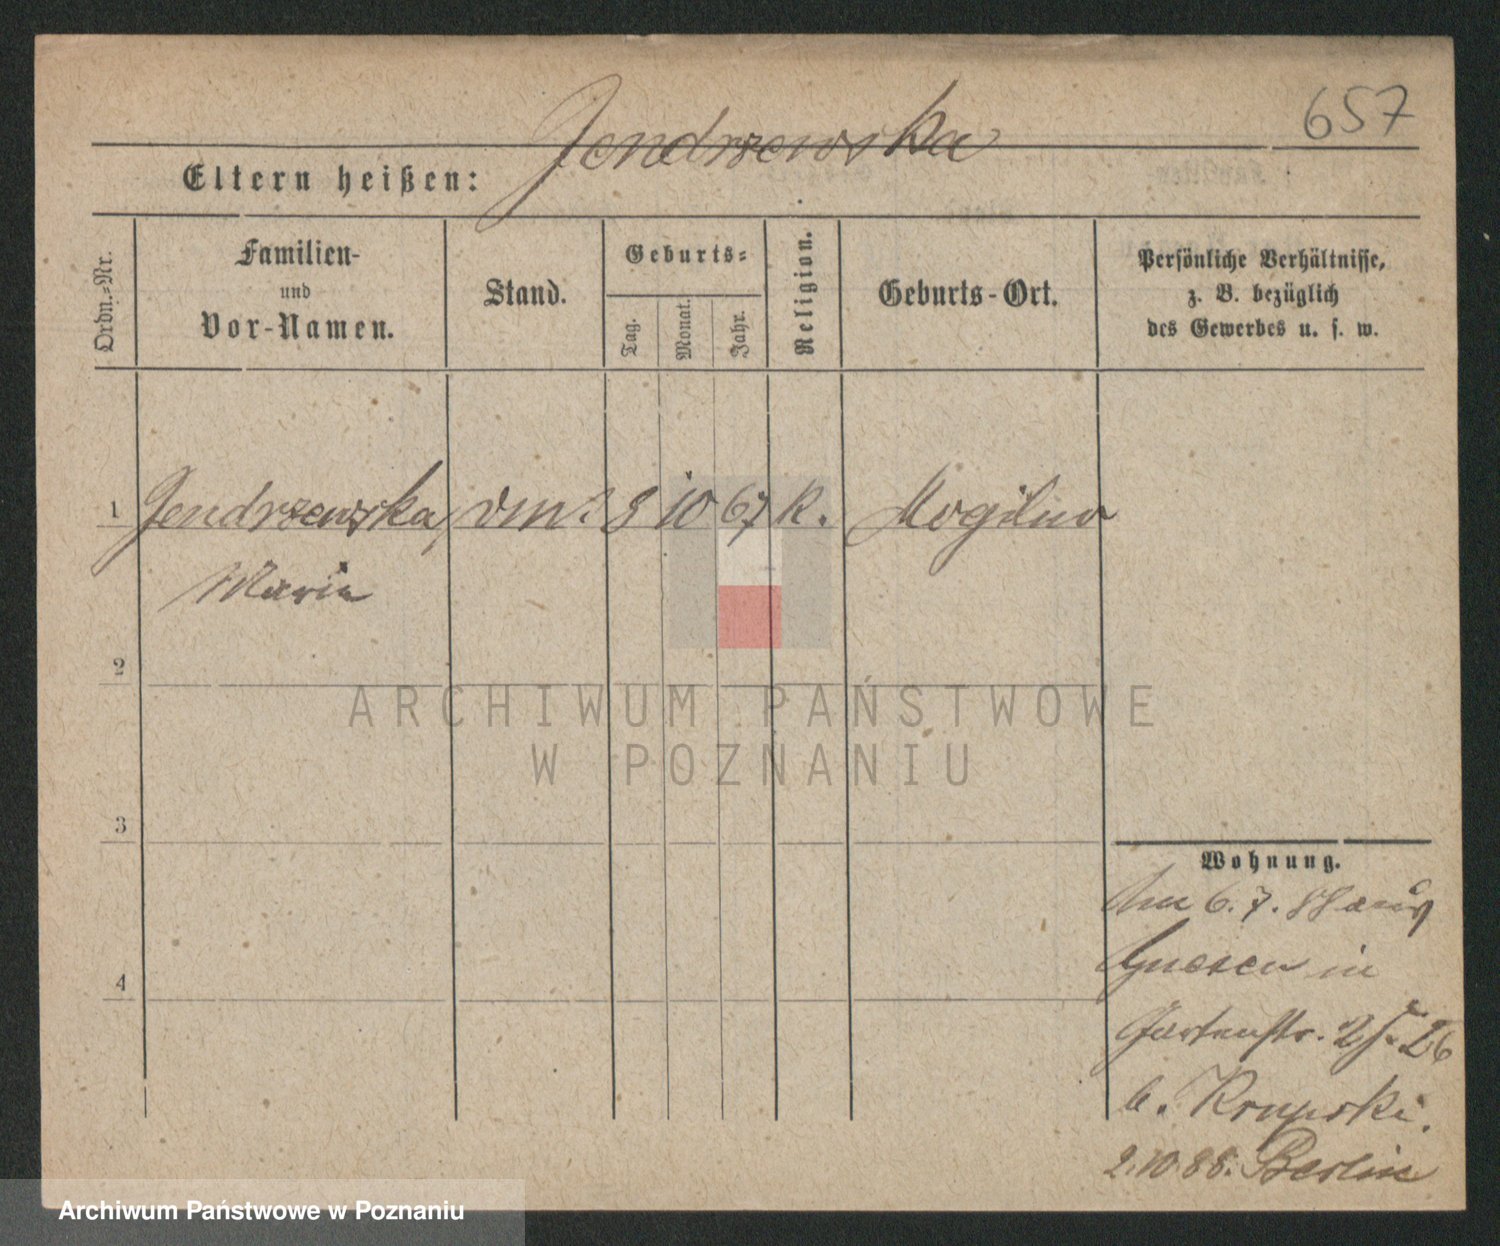 Jendrzewska
657
Eltern heißen:
Ordn.-Nr.
Familien-
und
Vor-Namen.
Stand.
Geburts-
Tag.
Monat.
Jahr.
Religion.
Geburts-Ort.
Persönliche Verhältnisse,
z. B. bezüglich
des Gewerbes u. s. w.
1 Jendrzewska, 8 10 67 K. Mogilno
Marie
2
ARCHIWUM PAŃSTWOWE
W POZNANIU
3
Wohnung.
Am 6. 7. 88 aus
Gnesen in
4
Gartenstr. 25-26
b. Krupski.
2.10.88. Berlin
Archiwum Państwowe w Poznaniu